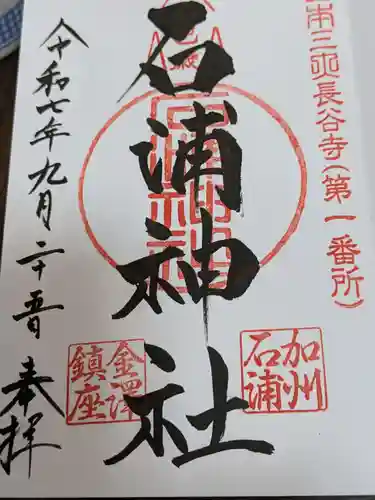 日本三大長谷寺(第一番所)
石浦神社
加州
石浦
金澤
鎮座
令和七年九月二十五日 奉拝